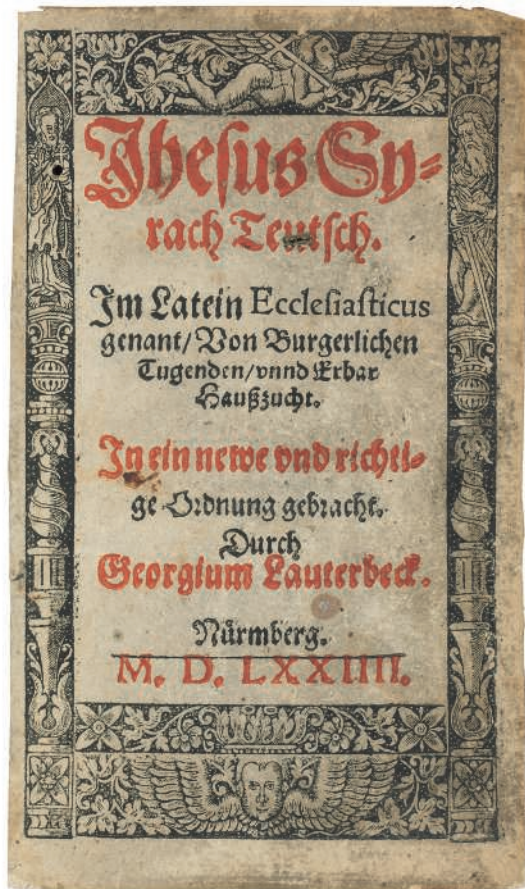 Jhesus Sy=
rach Teutsch.
Im Latein Ecclesiasticus
genant/ Von Burgerlichen
Tugenden/ vnnd Erbar
Haußzucht.
In ein newe vnd richti=
ge Ordnung gebracht.
Durch
Georgium Lauterbeck.
Nürmberg.
M. D. LXXIIII.